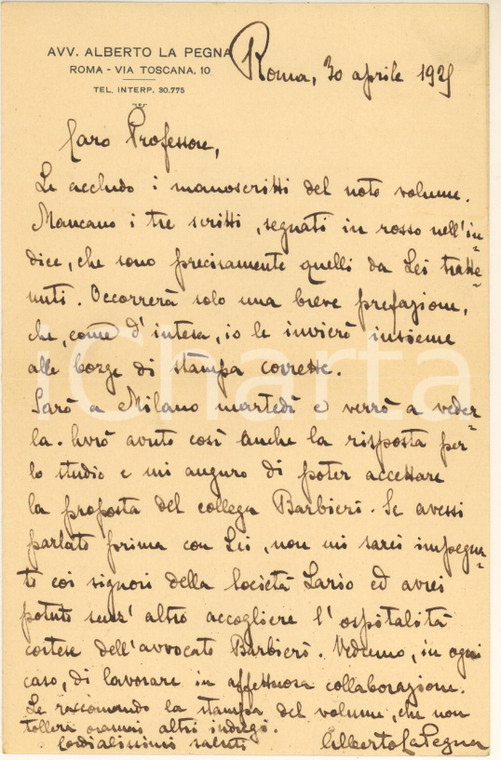 AVV. ALBERTO LA PEGNA
ROMA - VIA TOSCANA, 10
TEL. INTERP. 30.775
Roma, 30 aprile 1925
Caro Professore,
Le accludo i manoscritti del noto volume.
Mancano i tre scritti, segnati in rosso nell'in-
dice, che sono precisamente quelli da Lei tratte-
nuti. Occorrerà solo una breve prefazione,
che, come d'intesa, io le invierò insieme
alle borze di stampa corrette.
Sarò a Milano martedì e verrò a veder-
la. Avrò avuto così anche la risposta per
lo studio e mi auguro di poter accettare
la proposta del collega Barbieri. Se avessi
parlato prima con Lei, non mi sarei impegna-
to coi signori della Società Lario ed avrei
potuto senz'altro accogliere l'ospitalità
cortese dell'avvocato Barbieri. Vedremo, in ogni
caso, di lavorare in affettuosa collaborazione.
Le raccomando la stampa del volume, che non
tollera oramai altri indugi.
Cordialissimi saluti
Alberto La Pegna
iCharta